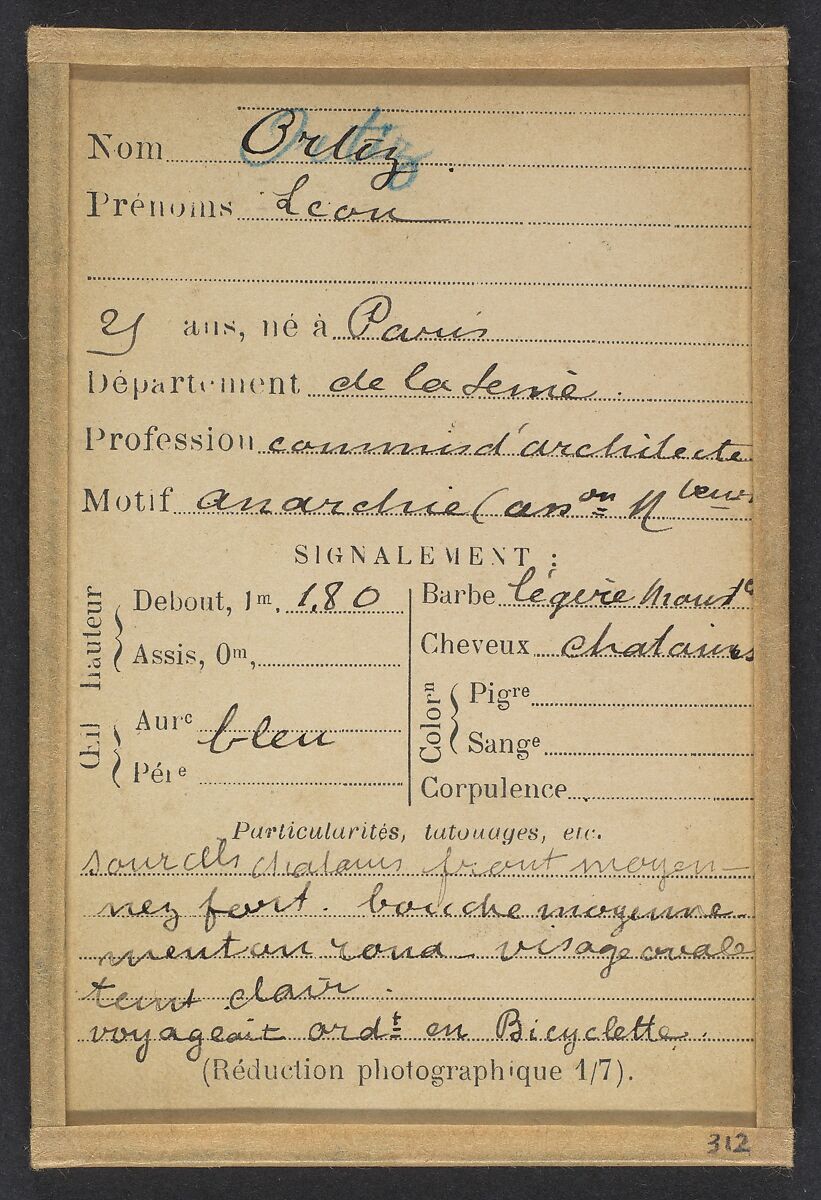 Nom Ortiz
Ortiz
Prénoms Léon
25 ans, né à Paris
Département de la Seine.
Profession commis d'architecte
Motif anarchie (assᵒⁿ Mᵗᵉᵘʳˢ
SIGNALEMENT :
hauteur
Debout, 1ᵐ, 1.80
Assis, 0ᵐ,
Œil
Aurᶜ bleu
Périᵉ
Barbe légère Mousᵗᵉ
Cheveux chatains
Colorⁿ
Pigʳᵉ
Sangᵉ
Corpulence
Particularités, tatouages, etc.
sourcils chatains front moyen
nez fort. bouche moyenne
menton rond visage ovale
teint clair.
voyageait ordᵗ en Bicyclette.
(Réduction photographique 1/7).
312